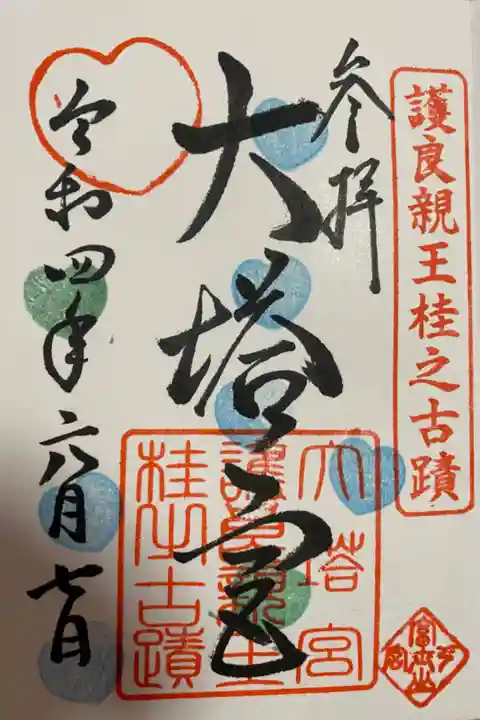 護良親王桂之古蹟
参拝
大塔宮
令和四年六月七日
大塔宮
護良親王
桂之古蹟